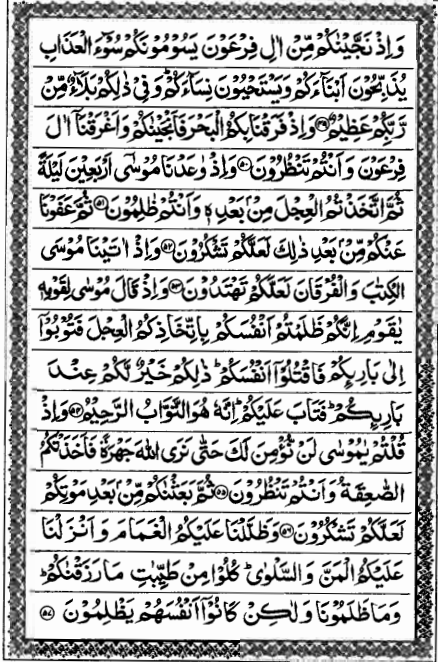 وَاِذْ نَجَّيْنٰكُمْ مِّنْ اٰلِ فِرْعَوْنَ يَسُوْمُوْنَكُمْ سُوْٓءَ الْعَذَابِ
يُذَبِّحُوْنَ اَبْنَآءَكُمْ وَيَسْتَحْيُوْنَ نِسَآءَكُمْ ؕ وَفِىْ ذٰلِكُمْ بَلَآءٌ مِّنْ
رَّبِّكُمْ عَظِيْمٌ ﴿۴۹﴾ وَاِذْ فَرَقْنَا بِكُمُ الْبَحْرَ فَاَنْجَيْنٰكُمْ وَاَغْرَقْنَآ اٰلَ
فِرْعَوْنَ وَاَنْتُمْ تَنْظُرُوْنَ ﴿۵۰﴾ وَاِذْ وٰعَدْنَا مُوْسٰٓى اَرْبَعِيْنَ لَيْلَةً
ثُمَّ اتَّخَذْتُمُ الْعِجْلَ مِنْۢ بَعْدِهٖ وَاَنْتُمْ ظٰلِمُوْنَ ﴿۵۱﴾ ثُمَّ عَفَوْنَا
عَنْكُمْ مِّنْۢ بَعْدِ ذٰلِكَ لَعَلَّكُمْ تَشْكُرُوْنَ ﴿۵۲﴾ وَاِذْ اٰتَيْنَا مُوْسَى
الْكِتٰبَ وَالْفُرْقَانَ لَعَلَّكُمْ تَهْتَدُوْنَ ﴿۵۳﴾ وَاِذْ قَالَ مُوْسٰى لِقَوْمِهٖ
يٰقَوْمِ اِنَّكُمْ ظَلَمْتُمْ اَنْفُسَكُمْ بِاتِّخَاذِكُمُ الْعِجْلَ فَتُوْبُوْٓا
اِلٰى بَارِئِكُمْ فَاقْتُلُوْٓا اَنْفُسَكُمْ ؕ ذٰلِكُمْ خَيْرٌ لَّكُمْ عِنْدَ
بَارِئِكُمْ ؕ فَتَابَ عَلَيْكُمْ ؕ اِنَّهٗ هُوَ التَّوَّابُ الرَّحِيْمُ ﴿۵۴﴾ وَاِذْ
قُلْتُمْ يٰمُوْسٰى لَنْ نُّؤْمِنَ لَكَ حَتّٰى نَرَى اللّٰهَ جَهْرَةً فَاَخَذَتْكُمُ
الصّٰعِقَةُ وَاَنْتُمْ تَنْظُرُوْنَ ﴿۵۵﴾ ثُمَّ بَعَثْنٰكُمْ مِّنْۢ بَعْدِ مَوْتِكُمْ
لَعَلَّكُمْ تَشْكُرُوْنَ ﴿۵۶﴾ وَظَلَّلْنَا عَلَيْكُمُ الْغَمَامَ وَاَنْزَلْنَا
عَلَيْكُمُ الْمَنَّ وَالسَّلْوٰى ؕ كُلُوْا مِنْ طَيِّبٰتِ مَا رَزَقْنٰكُمْ ؕ
وَمَا ظَلَمُوْنَا وَلٰكِنْ كَانُوْٓا اَنْفُسَهُمْ يَظْلِمُوْنَ ﴿۵۷﴾